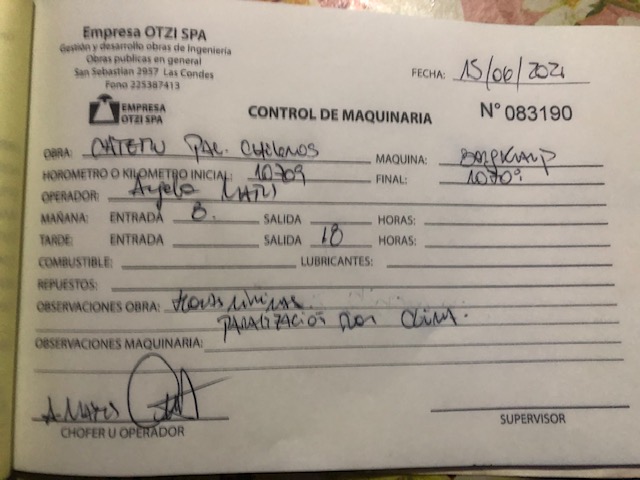 Empresa OTZI SPA
Gestión y desarrollo obras de Ingeniería
Obras publicas en general
San Sebastian 2937 Las Condes
Fono 225387413
FECHA: 15/06/2021
EMPRESA
OTZI SPA
CONTROL DE MAQUINARIA
N° 083190
OBRA: MAQUINA:
HOROMETRO O KILOMETRO INICIAL: 10709 FINAL: 10709
OPERADOR: Angelo
MAÑANA: ENTRADA 8. SALIDA HORAS:
TARDE: ENTRADA SALIDA 18 HORAS:
COMBUSTIBLE: LUBRICANTES:
REPUESTOS:
OBSERVACIONES OBRA: Horas minimas.
Paralización por clima.
OBSERVACIONES MAQUINARIA:
CHOFER U OPERADOR
SUPERVISOR